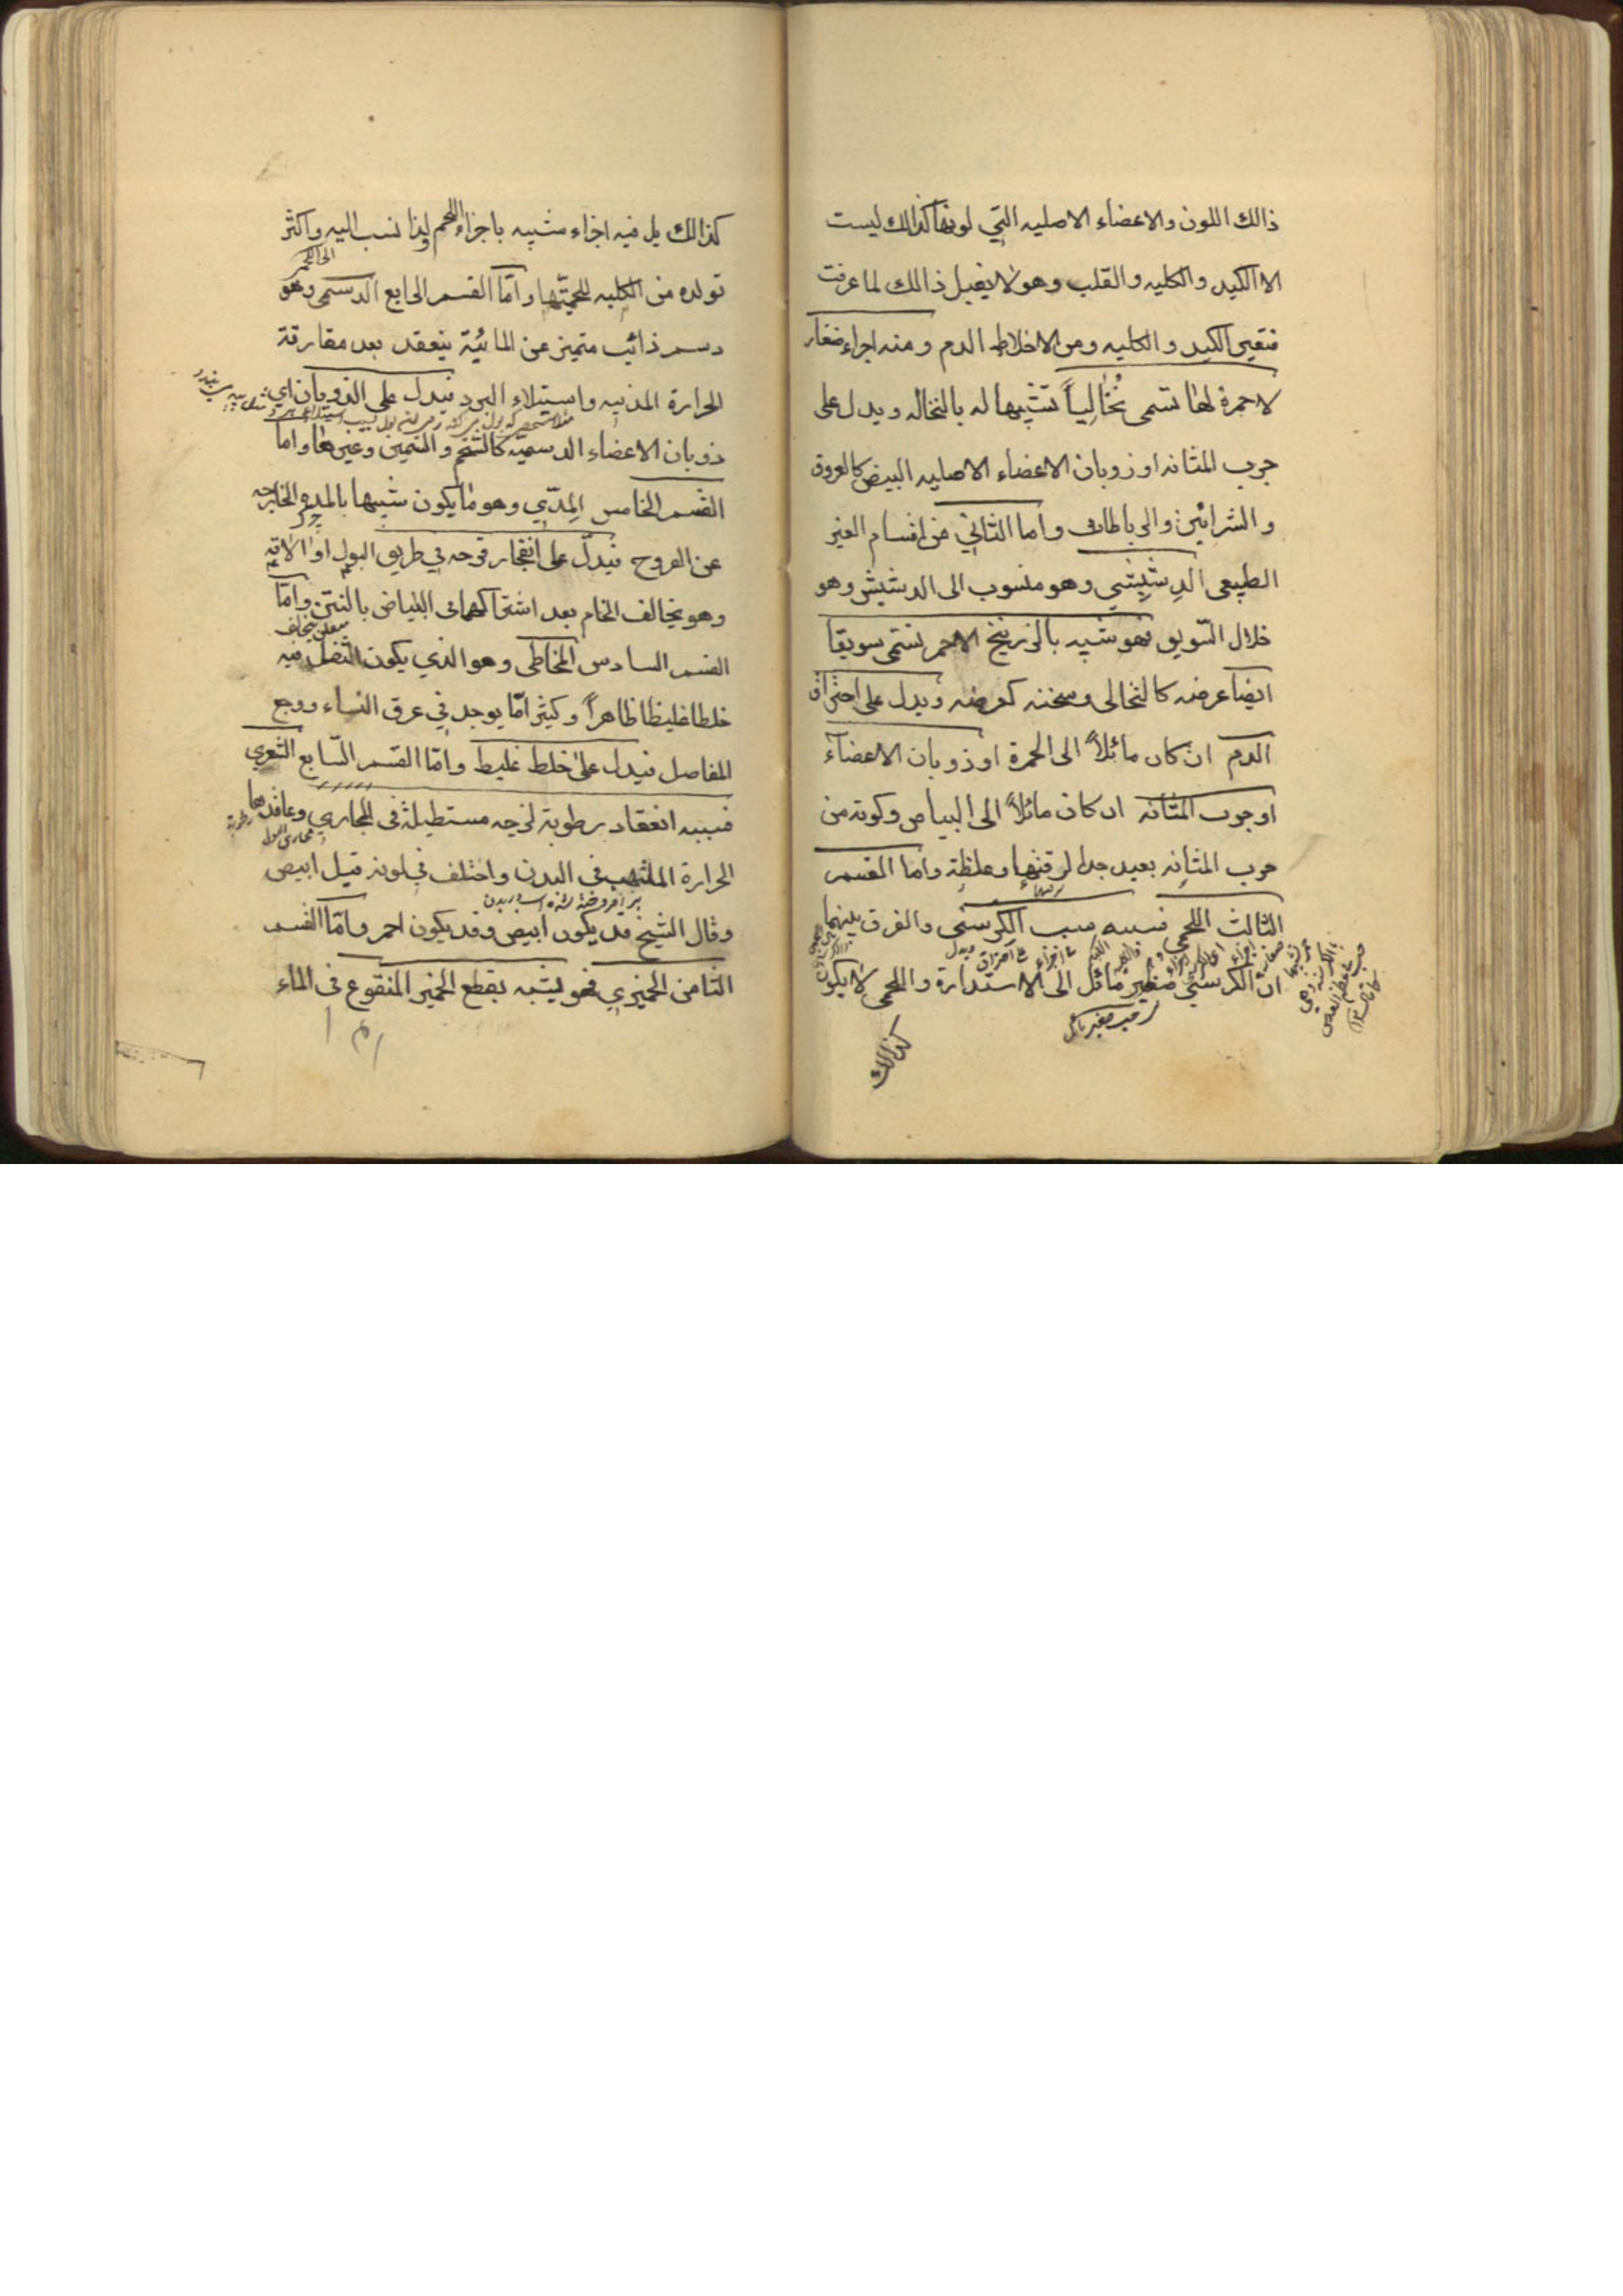 ذالك اللون والاعضاء الاصليه التي لونها كذالك ليست
الا الكبد والكليه والقلب وهو لا يقبل ذالك لما عرفت
فتعين الكبد والكليه ومن الاخلاط الدم ومنه اجزاء صغار
لا حمرة لها تسمى نُخٰالِياً تشبيها له بالنخاله ويدل على
جرب المثانه او ذوبان الاعضاء الاصليه البيض كالعروق
و الشرائين والرباطات واما الثاني من اقسام الغير
الطبيعى الدِشِيشي وهو منسوب الى الدشيش وهو
خلال السّويق فهو شبيه بالزرنيخ الاحمر تسمى سويقا
ايضا عرضه كالنخالى وسخنه كعرضه ويدل على احتراق
الدم ان كان مائلاً الى الحمرة او ذوبان الاعضاء
او جرب المثانه ان كان مائلاً الى البياض وكونه من
جرب المثانه بعيد جدا لرقتها وغلظة واما القسم
الثالث اللحمى فسببه سبب الكرسنى والفرق بينهما
ان الكرسنى صغير مائل الى الاستدارة واللحمى لا يكون
كذالك
كذالك بل فيه اجزاء شبيه باجزاء اللحم ولذا نسب اليه واكثر
الى اللحم
تولده من الكليه للحميّتها واَمّا القسم الرابع الدسمى وهو
دسم ذائب متميز عن المائيّة ينعقد بعد مفارقة
الحرارة المذيبه واستيلاء البرد فيدل على الذوبان اي
ذوبان الاعضاء الدسميّه كالشحم والسمين وغيرها واما
القسم الخامس المِدّي وهو ما يكون شبيها بالمده الخارجه
عن القروح فيدلّ على انفجار قرحه في طريق البول او الاته
وهو يخالف الخام بعد اشتراكهما فى البياض بالنتن وامّا
القسم السادس المخاطى وهو الذي يكون الثفل فيه
خلطا غليظا ظاهراً وكثيرامّا يوجد في عرق النساء ووجع
المفاصل فيدل على خلط غليظ وامّا القسم السّابع الشعري
فسببه انعقاد رطوبة لزجه مستطيلة فى المجاري وعاقدها
الحرارة الملتهب فى البدن واختلف في لونه قيل ابيض
وقال الشيخ قد يكون ابيض وقد يكون احمر وامّا القسم
الثامن الخميري فهو يشبه بقطع الخمير المنقوع فى الماء